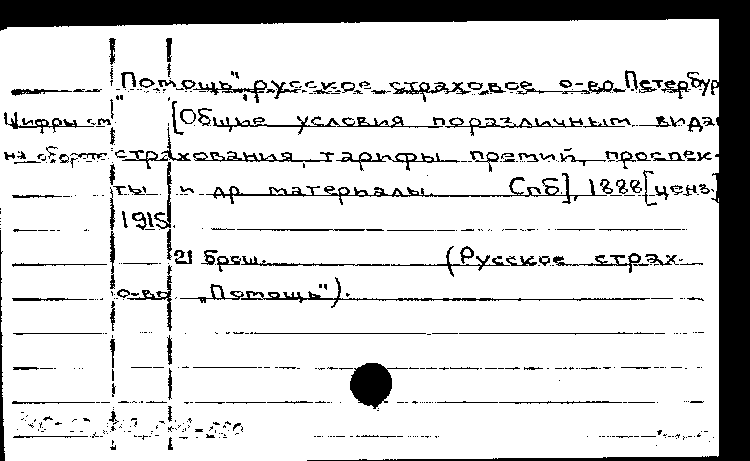 "Помощь", русское страховое о-во Петербур
Цифры см [Общие условия поразличным вида
на обороте страхования, тарифы премий, проспек-
ты и др материалы. Спб], 1888 [ценз.]
1915.
21 брош. (Русское страх.
о-во „Помощь").